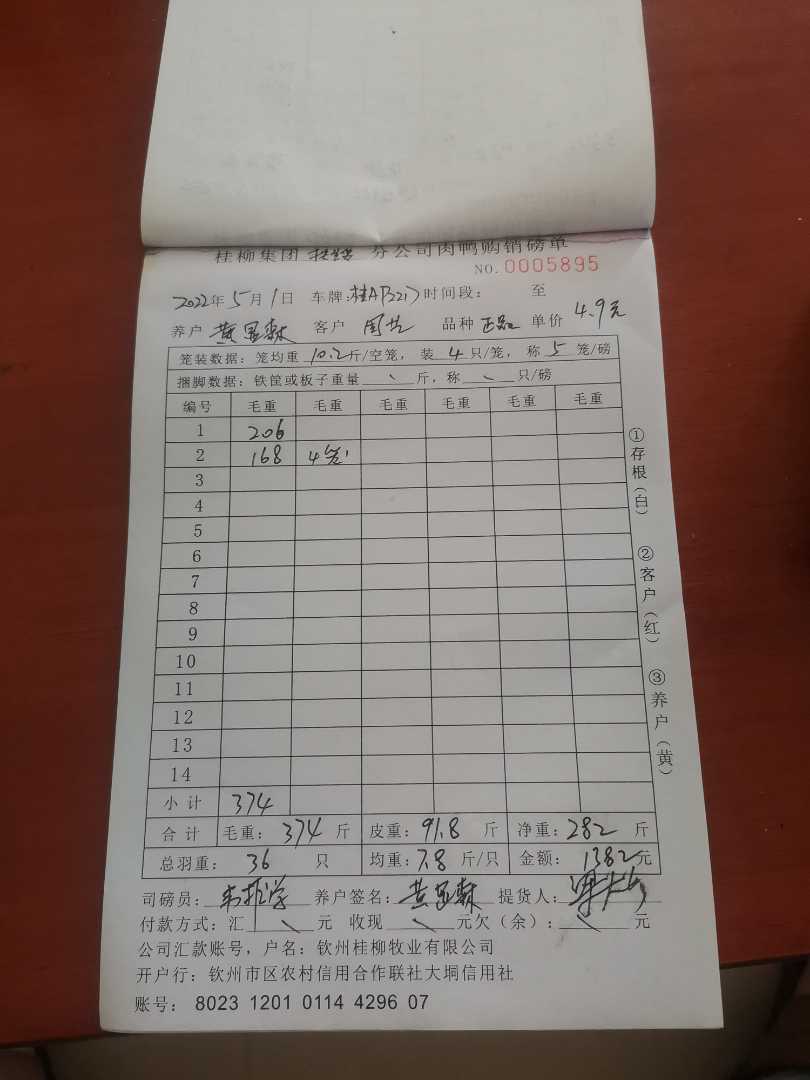 桂柳集团 分公司肉鸭购销磅单
NO.0005895
2022年5月1日 车牌:桂A 时间段: 至
养户 黄显森 客户 周艺 品种 正品 单价 4.9元
笼装数据:笼均重 10.2斤/空笼,装 4 只/笼,称 5 笼/磅
捆脚数据:铁筐或板子重量 斤,称 只/磅
编号 毛重 毛重 毛重 毛重 毛重 毛重
1 206
2 168 4笼
3
4
5
6
7
8
9
10
11
12
13
14
小计 374
合计 毛重: 374 斤 皮重: 91.8 斤 净重: 282 斤
总羽重: 36 只 均重: 7.8 斤/只 金额: 1382元
司磅员: 养户签名: 黄显森 提货人:
付款方式:汇 元 收现 元欠(余): 元
公司汇款账号,户名:钦州桂柳牧业有限公司
开户行:钦州市区农村信用合作联社大垌信用社
账号: 8023 1201 0114 4296 07
①存根(白)
②客户(红)
③养户(黄)